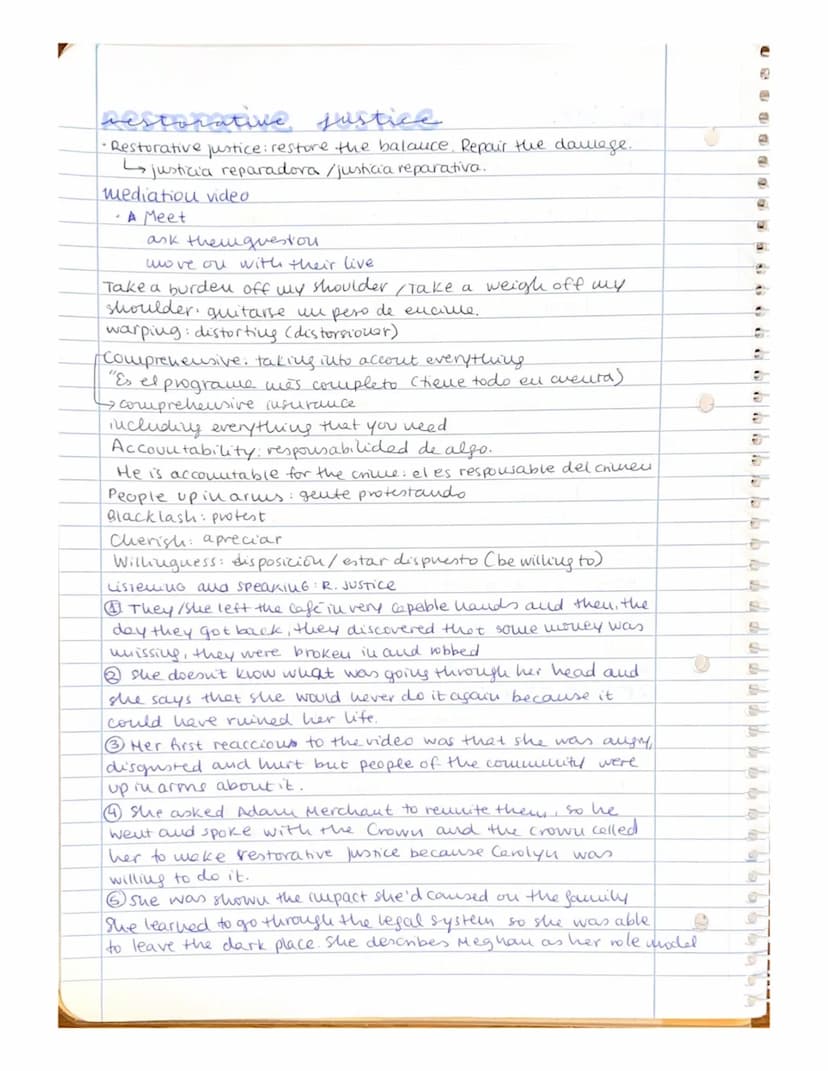 restorative justice
· Restorative justice: restore the balance. Repair the damage.
↳ justicia reparadora / justicia reparativa.
Mediation video
· A Meet
ask them question
move on with their live
Take a burden off my shoulder / Take a weigh off my
shoulder: quitarse un peso de encima.
warping: distorting (distorsionar)
Comprehensive: taking into account everything
"Es el programa más completo (tiene todo en cuenta)
→ comprehensive insurance
including everything that you need
Accountability: responsabilidad de algo.
He is accountable for the crime: el es responsable del crimen
People up in arms: gente protestando
Blacklash: protest
Cherish: apreciar
Willingness: disposición / estar dispuesto (be willing to)
Listening and speaking: R. Justice
① They/She left the café in very capable hands and then, the
day they got back, they discovered that some money was
missing, they were broken in and robbed
② She doesn't know what was going through her head and
she says that she would never do it again because it
could have ruined her life.
③ Her first reaccious to the video was that she was angry,
disgusted and hurt but people of the community were
up in arms about it.
④ She asked Adam Merchant to reunite them, so he
went and spoke with the Crown and the crown called
her to make restorative justice because Carolyn was
willing to do it.
⑤ She was shown the impact she'd caused on the family
She learned to go through the legal system so she was able
to leave the dark place. She describes Meghan as her role model